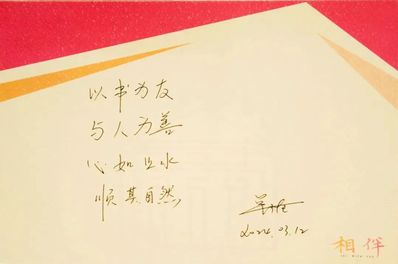 以书为友
与人为善
心如止水
顺其自然
2024.03.12
相伴